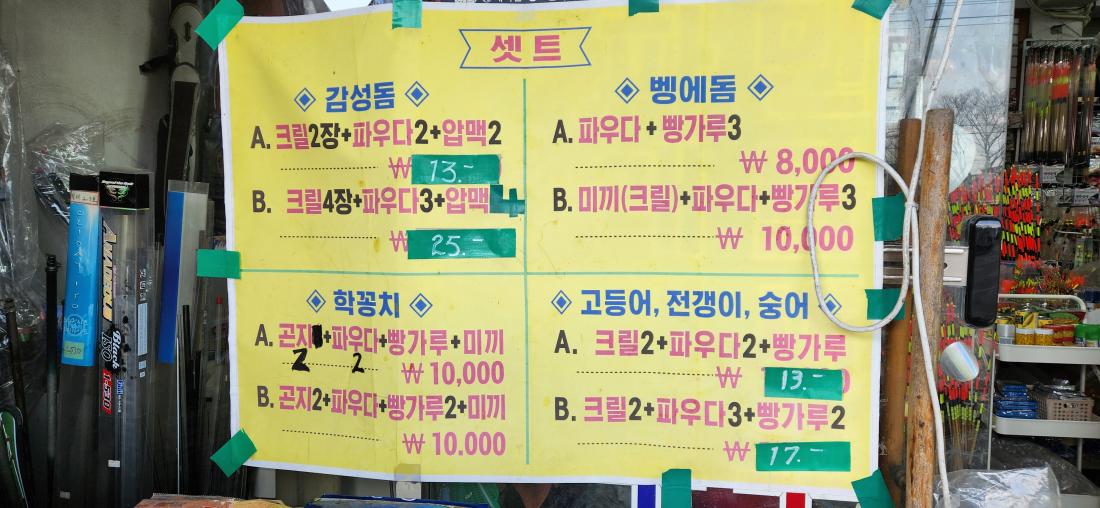 셋트
감성돔
A. 크릴2장+파우다2+압맥2
₩ 13.-
B. 크릴4장+파우다3+압맥4
₩ 25.-
벵에돔
A. 파우다 + 빵가루3
₩ 8,000
B. 미끼(크릴)+파우다+빵가루3
₩ 10,000
학꽁치
A. 곤지+파우다+빵가루+미끼
2 2
₩ 10,000
B. 곤지2+파우다+빵가루2+미끼
₩ 10.000
고등어, 전갱이, 숭어
A. 크릴2+파우다2+빵가루
₩ 13.-
B. 크릴2+파우다3+빵가루2
₩ 17.-
Black
1-530